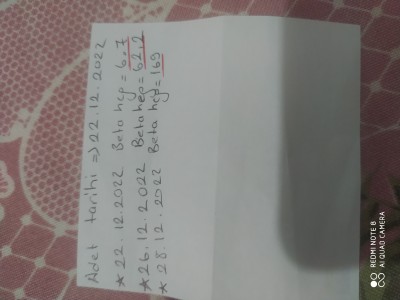 Adet tarihi => 22.12.2022
* 22.12.2022 Beta hcg = 6.7
* 26.12.2022 Beta hcg = 62.2
* 28.12.2022 Beta hcg = 169
REDMI NOTE 8
AI QUAD CAMERA